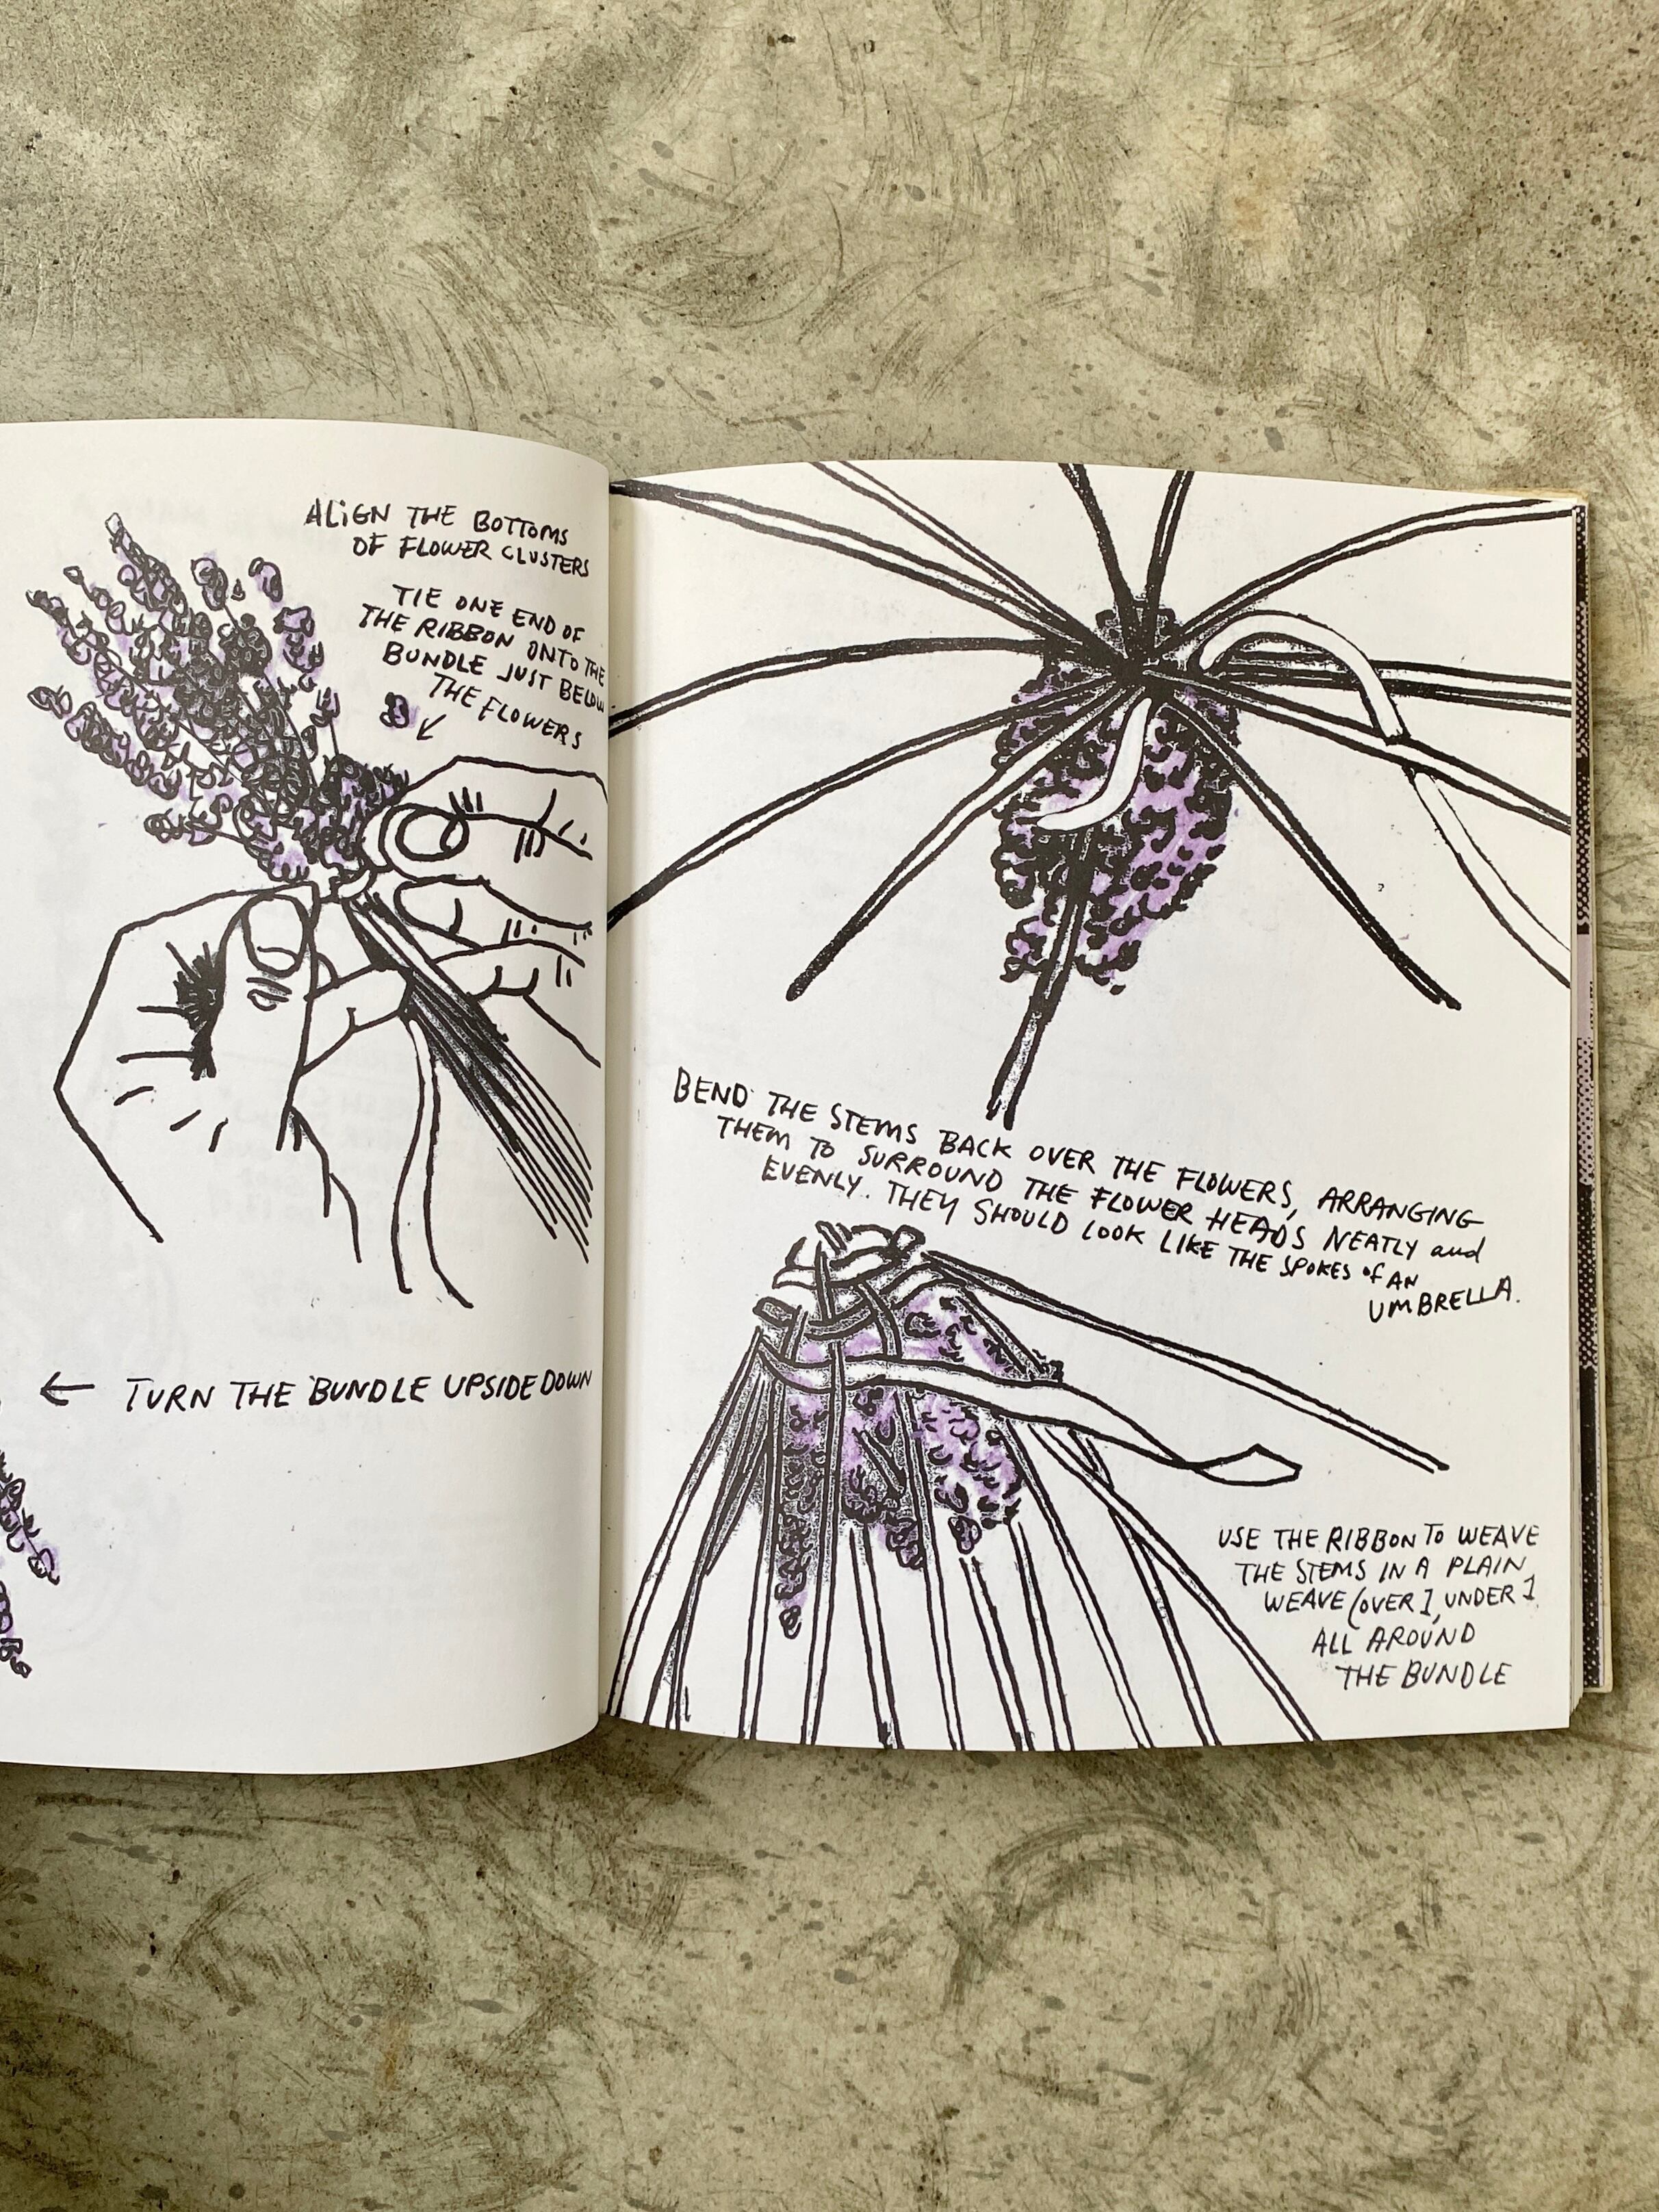 ALIGN THE BOTTOMS
OF FLOWER CLUSTERS
TIE ONE END OF
THE RIBBON ONTO THE
BUNDLE JUST BELOW
THE FLOWERS
← TURN THE BUNDLE UPSIDE DOWN
BEND THE STEMS BACK OVER THE FLOWERS, ARRANGING
THEM TO SURROUND THE FLOWER HEADS NEATLY and
EVENLY. THEY SHOULD LOOK LIKE THE SPOKES of AN
UMBRELLA.
USE THE RIBBON TO WEAVE
THE STEMS IN A PLAIN
WEAVE (OVER 1, UNDER 1
ALL AROUND
THE BUNDLE